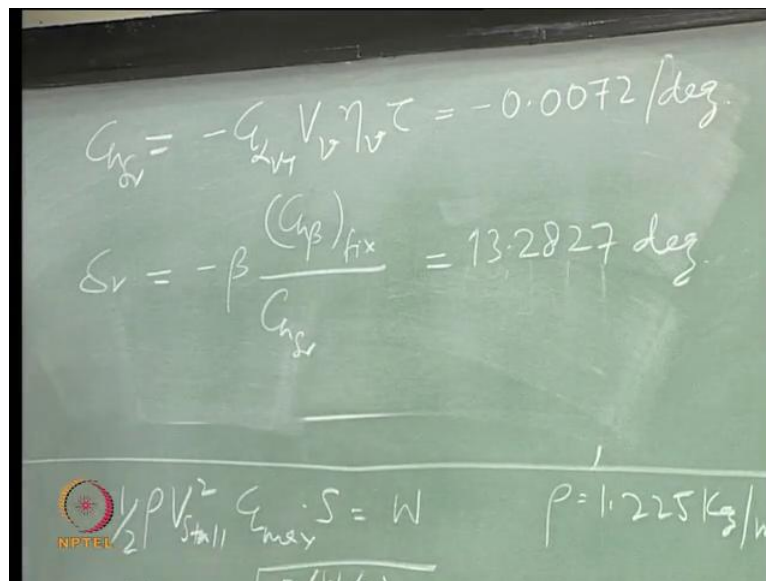 C_{n_{δr}} = - C_{L_{α_{VT}}} V_v η_v τ = -0.0072/deg.
δr = -β (C_{nβ})_{fix} / C_{n_{δr}} = 13.2827 deg.
1/2 ρ V²_{Stall} C_{L_{max}} · S = W ρ = 1.225 Kg/m
NPTEL